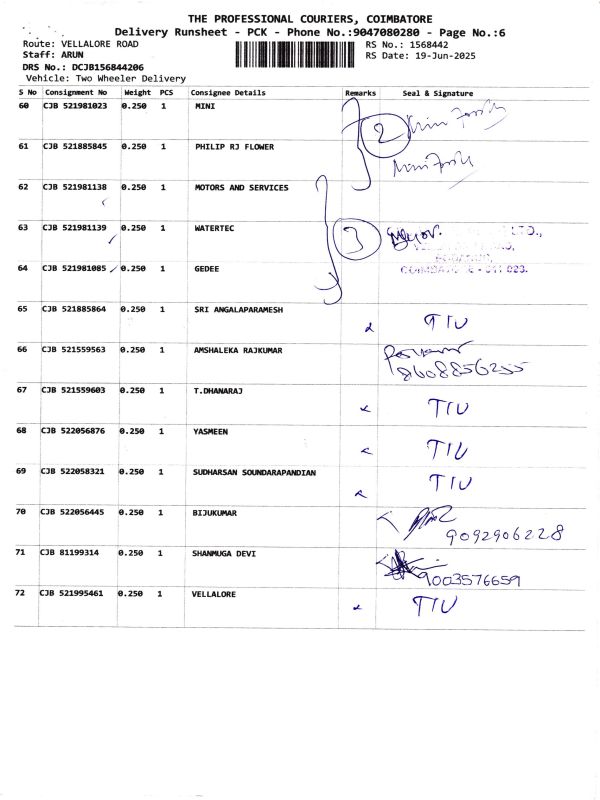 THE PROFESSIONAL COURIERS, COIMBATORE
Delivery Runsheet - PCK - Phone No.:9047080280 - Page No.:6
Route: VELLALORE ROAD RS No.: 1568442
Staff: ARUN RS Date: 19-Jun-2025
DRS No.: DCJB156844206
Vehicle: Two Wheeler Delivery
S No Consignment No Weight PCS Consignee Details Remarks Seal & Signature
60 CJB 521981023 0.250 1 MINI
2
61 CJB 521885845 0.250 1 PHILIP RJ FLOWER
62 CJB 521981138 0.250 1 MOTORS AND SERVICES
63 CJB 521981139 0.250 1 WATERTEC LTD.,
3
64 CJB 521981085 0.250 1 GEDEE COIMBATORE - 641 023.
65 CJB 521885864 0.250 1 SRI ANGALAPARAMESH TIU
66 CJB 521559563 0.250 1 AMSHALEKA RAJKUMAR
8608856255
67 CJB 521559603 0.250 1 T.DHANARAJ TIU
68 CJB 522056876 0.250 1 YASMEEN TIU
69 CJB 522058321 0.250 1 SUDHARSAN SOUNDARAPANDIAN TIU
70 CJB 522056445 0.250 1 BIJUKUMAR
9092906228
71 CJB 81199314 0.250 1 SHANMUGA DEVI
9003576659
72 CJB 521995461 0.250 1 VELLALORE TIU